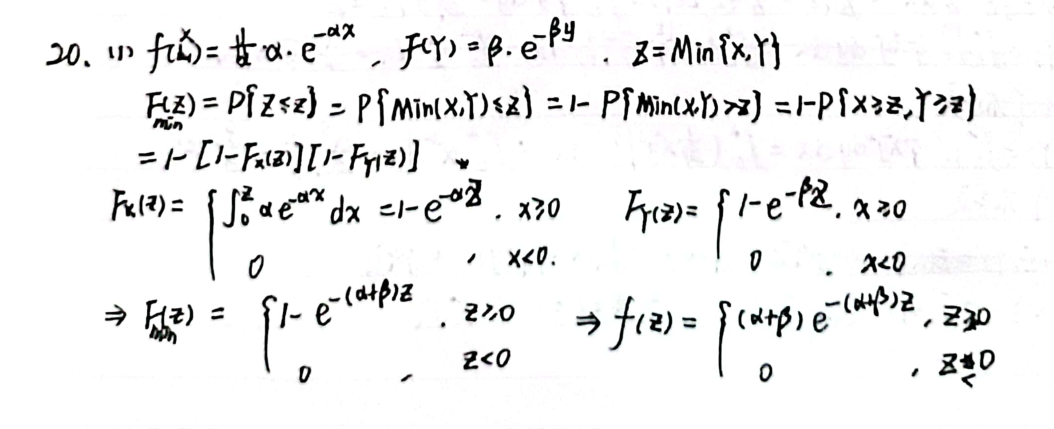 20. (1) f(x) = α·e^{-αx}, F(Y) = β·e^{-βy}. Z = Min{X,Y}
F_{min}(z) = P{Z≤z} = P{Min(X,Y)≤z} = 1- P{Min(X,Y)>z} = 1-P{X≥z,Y≥z}
= 1- [1-F_X(z)][1-F_Y(z)]
F_X(z) = { ∫_0^z αe^{-αx} dx = 1-e^{-αz}, x≥0 F_Y(z) = { 1-e^{-βz}, x≥0
0, x<0. 0, x<0
⇒ F_{min}(z) = { 1- e^{-(α+β)z}, z≥0 ⇒ f(z) = { (α+β)e^{-(α+β)z}, z≥0
0, z<0 0, z<0